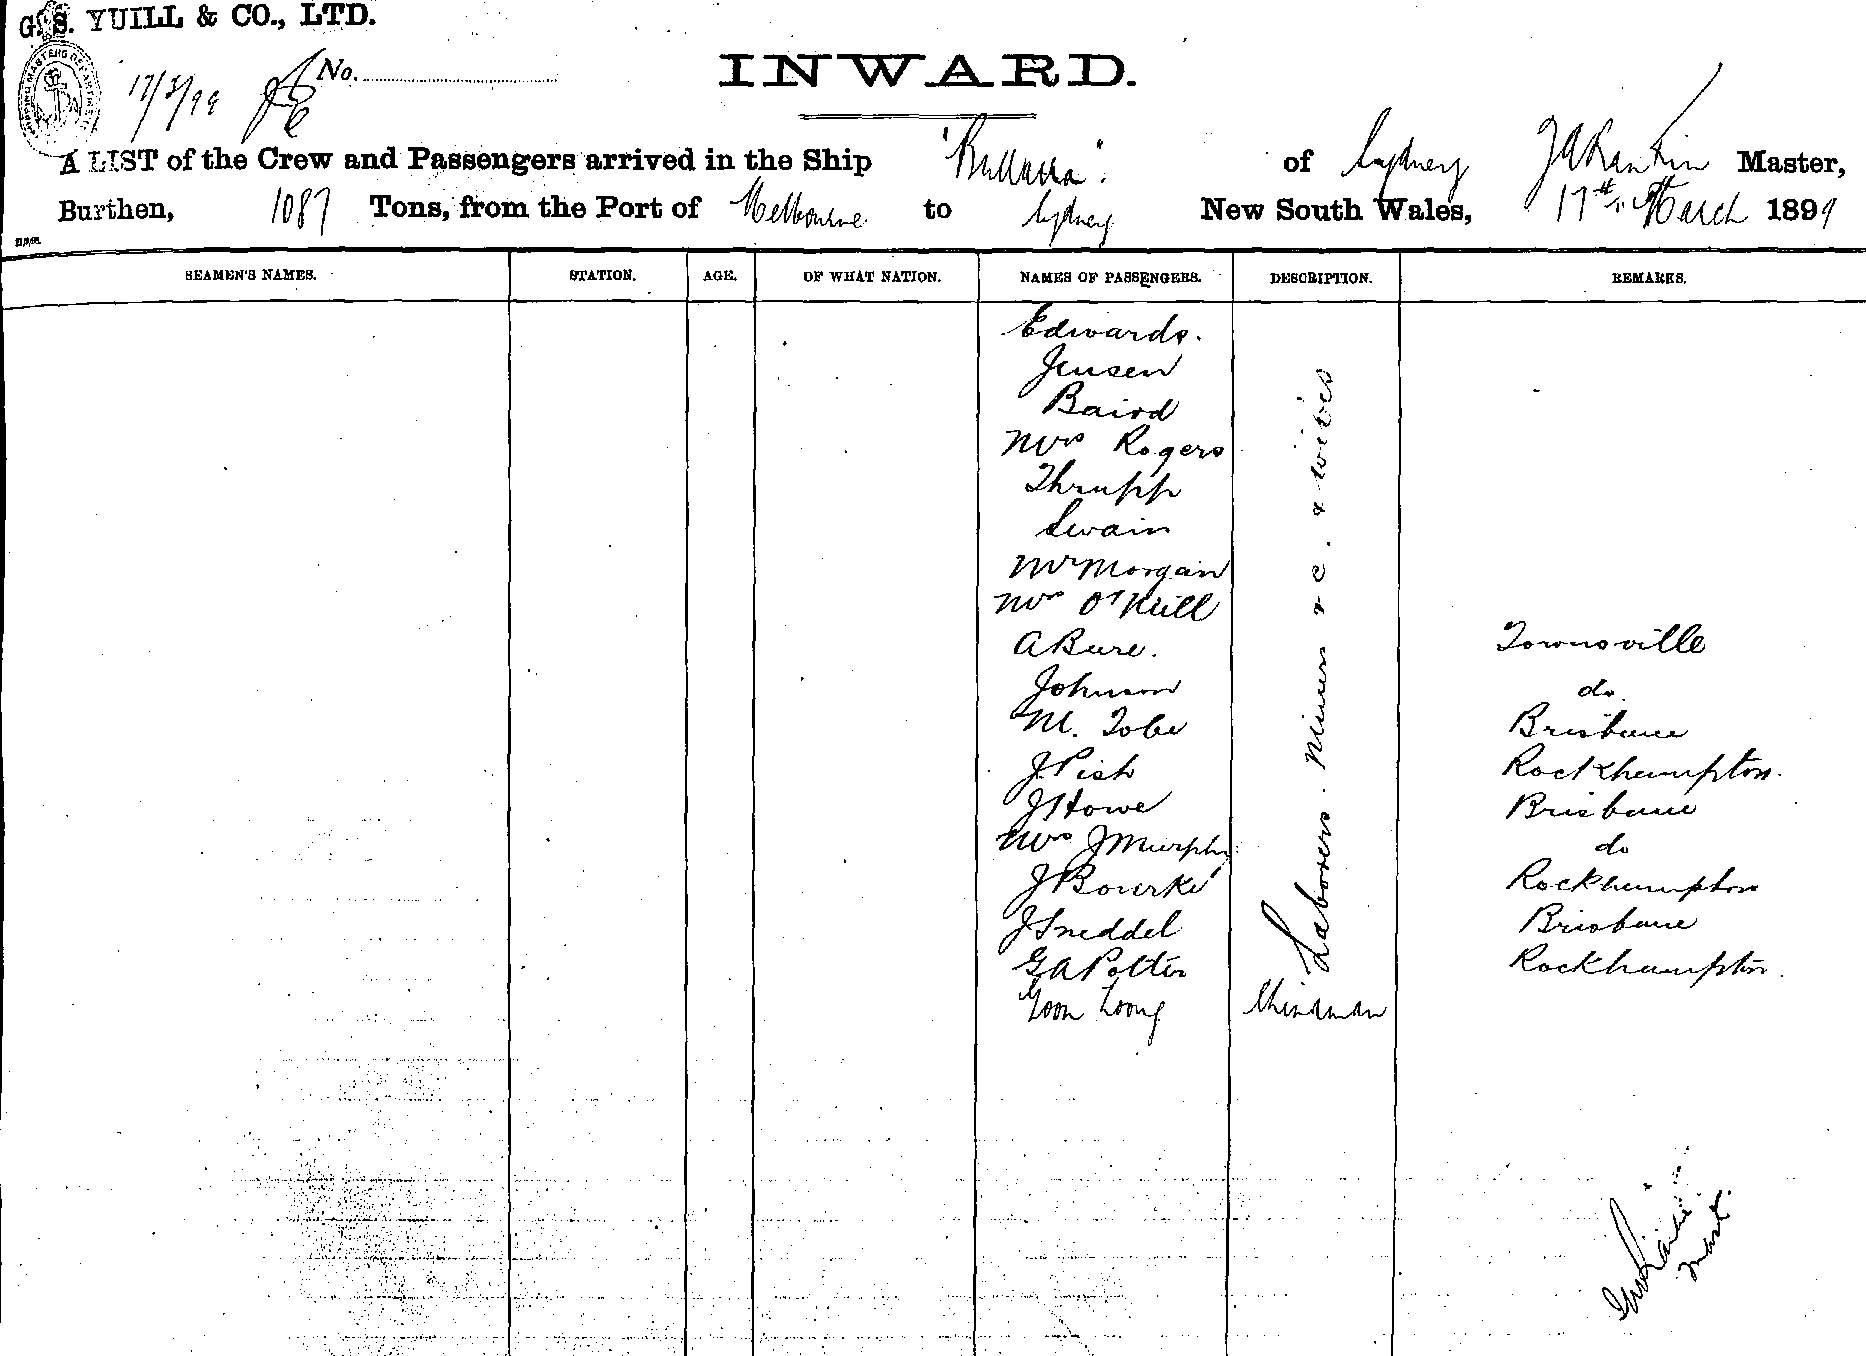 G. S. YUILL & CO., LTD.
17/3/99 No.
INWARD.
A LIST of the Crew and Passengers arrived in the Ship "Bullarra" of Sydney J A Rankin Master,
Burthen, 1087 Tons, from the Port of Melbourne to Sydney New South Wales, 17th March 1899
SEAMEN'S NAMES. STATION. AGE. OF WHAT NATION. NAMES OF PASSENGERS. DESCRIPTION. REMARKS.
Edwards.
Jensen
Baird
Mrs Rogers
Thrupp
Swain
Mr Morgan
Mrs O'Neill
A Bure. Townsville
Johnson do.
M. Tobe Brisbane
J. Pish Rockhampton.
J Howe Brisbane
Mrs J Murphy do
J Bourke Rockhampton
J Sneddel Brisbane
G A Potter Rockhampton.
Laborers. Miners & c. & wives
Goon Loong Chinaman